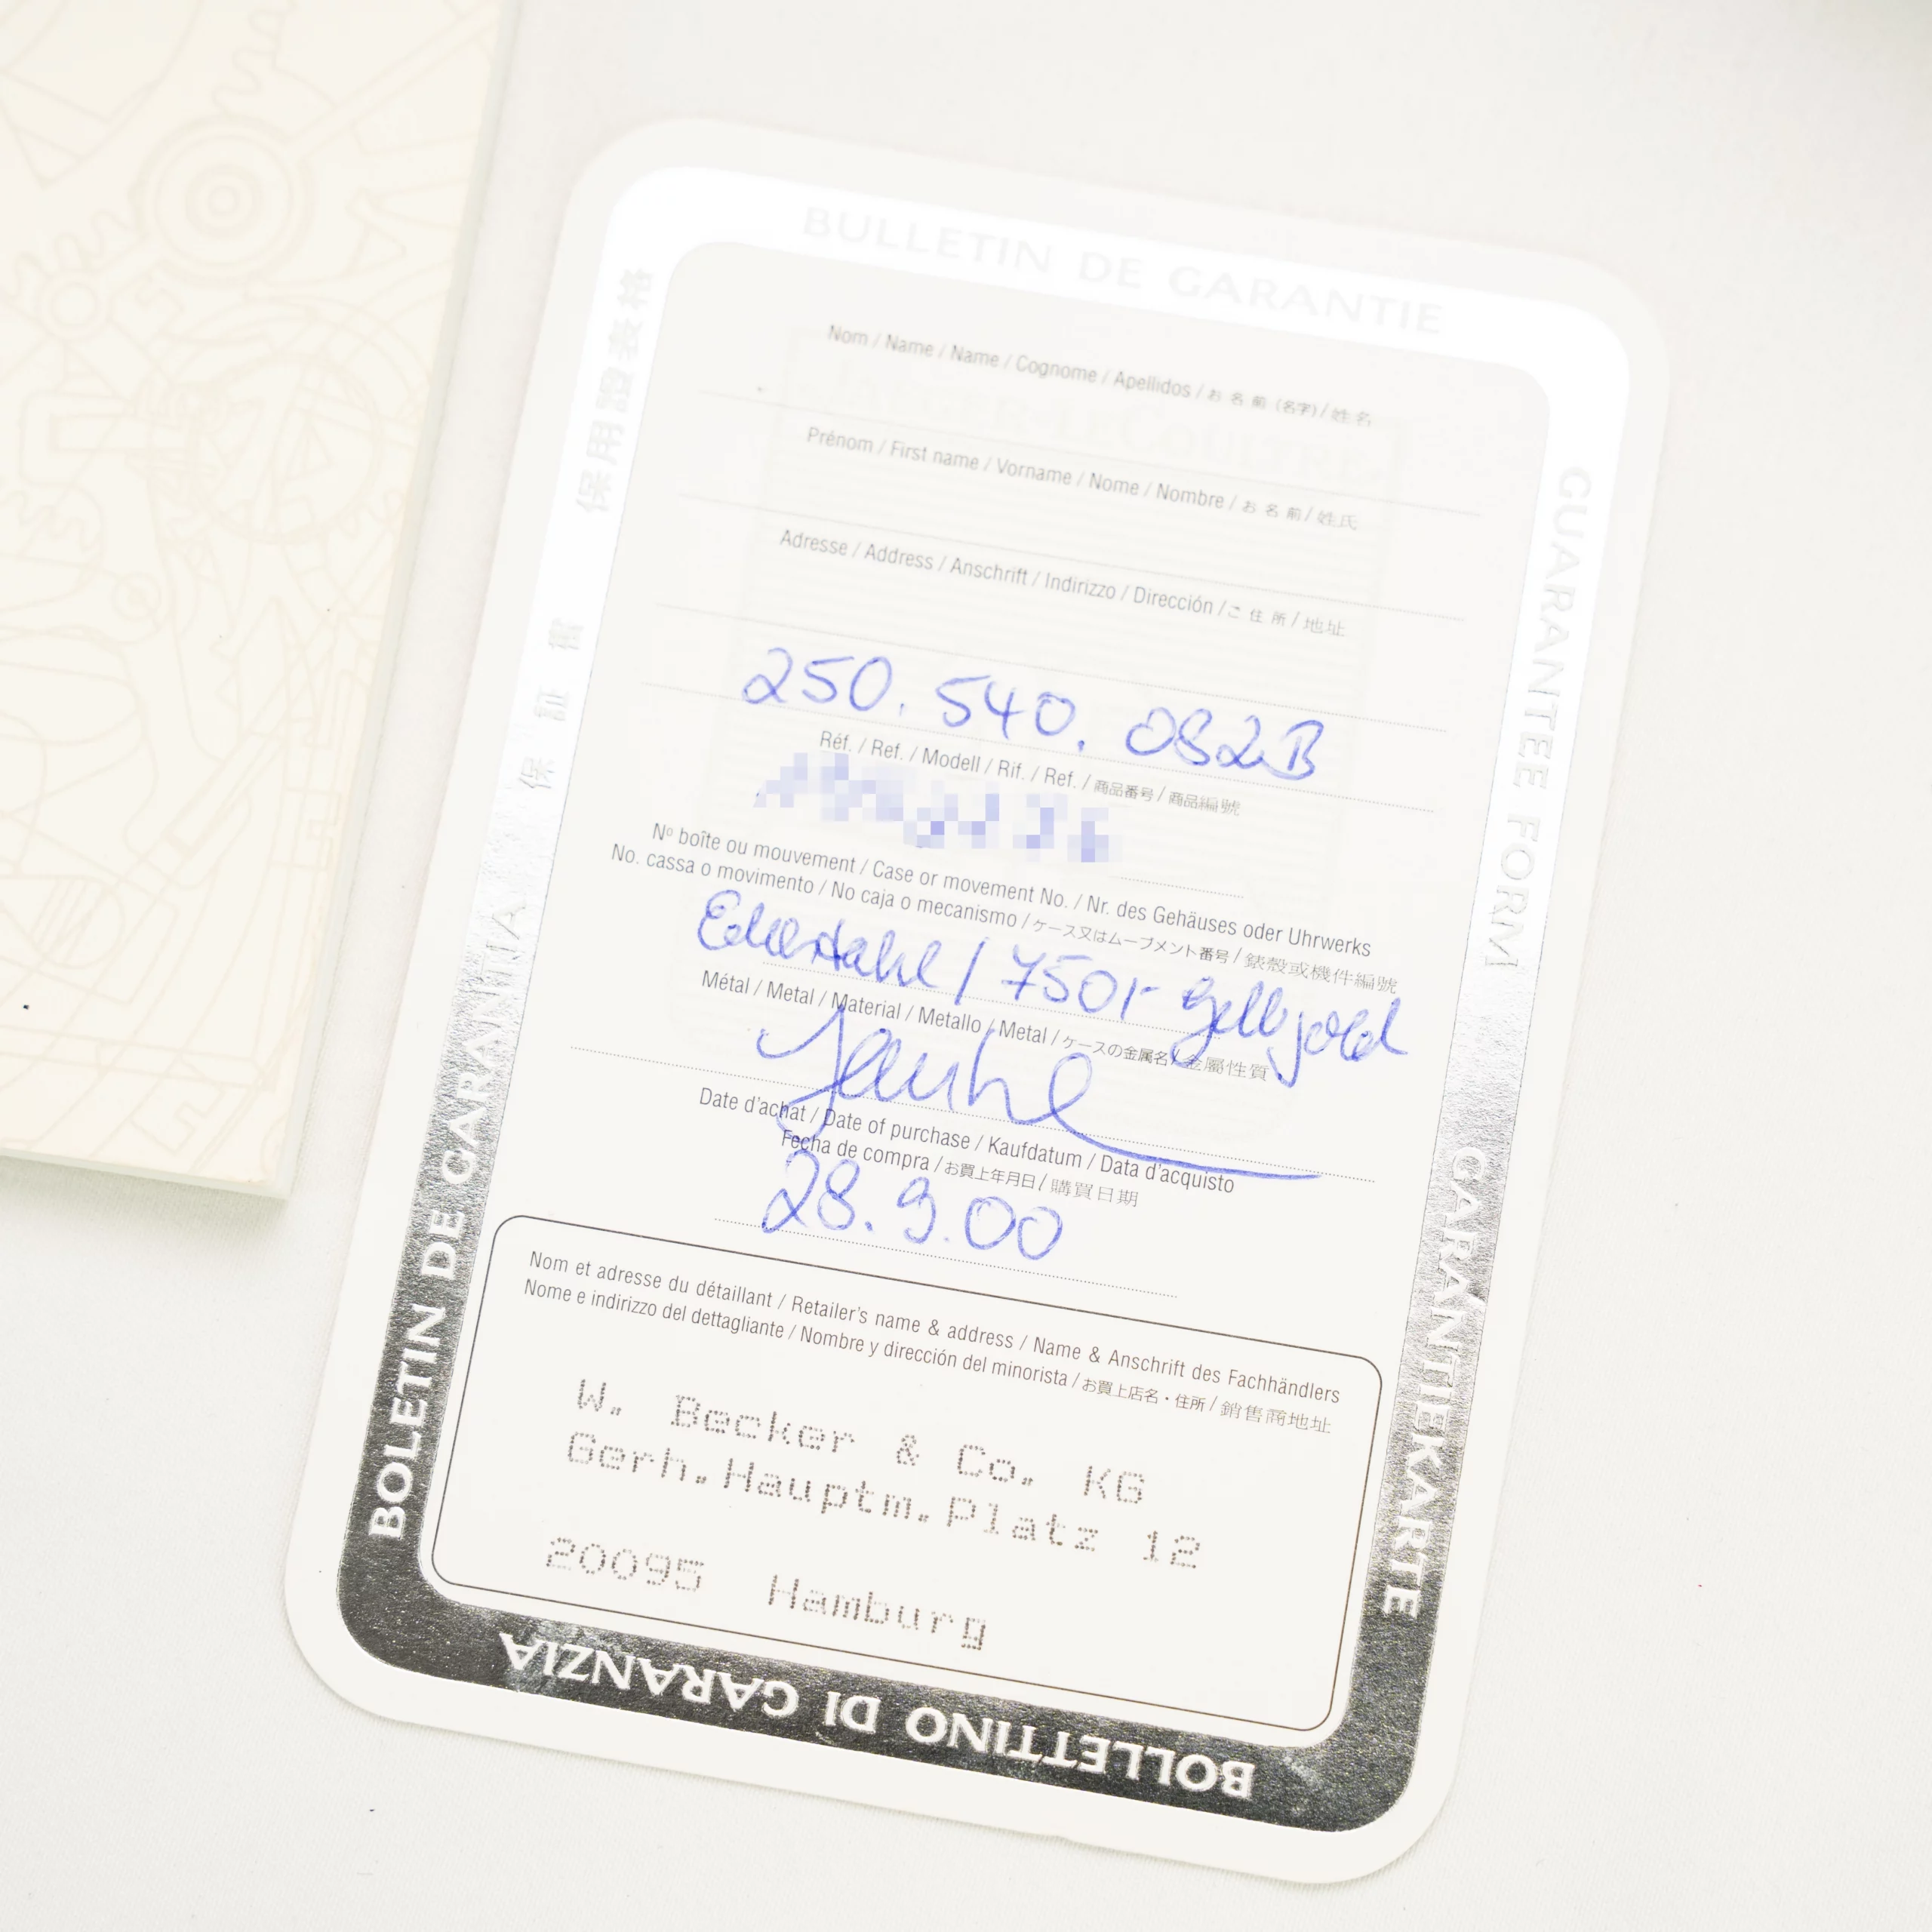 BULLETIN DE GARANTIE
Nom / Name / Name / Cognome / Apellidos / お 名 前 (名字) / 姓 名
JAEGER-LECOULTRE
Prénom / First name / Vorname / Nome / Nombre / お 名 前 / 姓氏
Adresse / Address / Anschrift / Indirizzo / Dirección / ご 住 所 / 地址
250. 540. 082B
Réf. / Ref. / Modell / Rif. / Ref. / 商品番号 / 商品編號
Nº boîte ou mouvement / Case or movement No. / Nr. des Gehäuses oder Uhrwerks
No. cassa o movimento / No caja o mecanismo / ケース又はムーブメント番号 / 錶殼或機件編號
Edelstahl / 750r gelbgold
Métal / Metal / Material / Metallo / Metal / ケースの金属名 / 金屬性質
Date d'achat / Date of purchase / Kaufdatum / Data d'acquisto
Fecha de compra / お買上年月日 / 購買日期
28. 9. 00
Nom et adresse du détaillant / Retailer's name & address / Name & Anschrift des Fachhändlers
Nome e indirizzo del dettagliante / Nombre y dirección del minorista / お買上店名・住所 / 銷售商地址
W. Becker & Co. KG
Gerh.Hauptm.Platz 12
20095 Hamburg
GUARANTEE FORM
GARANTIEKARTE
BOLLETTINO DI GARANZIA
BOLETIN DE GARANTIA
保 証 書
保用證表格